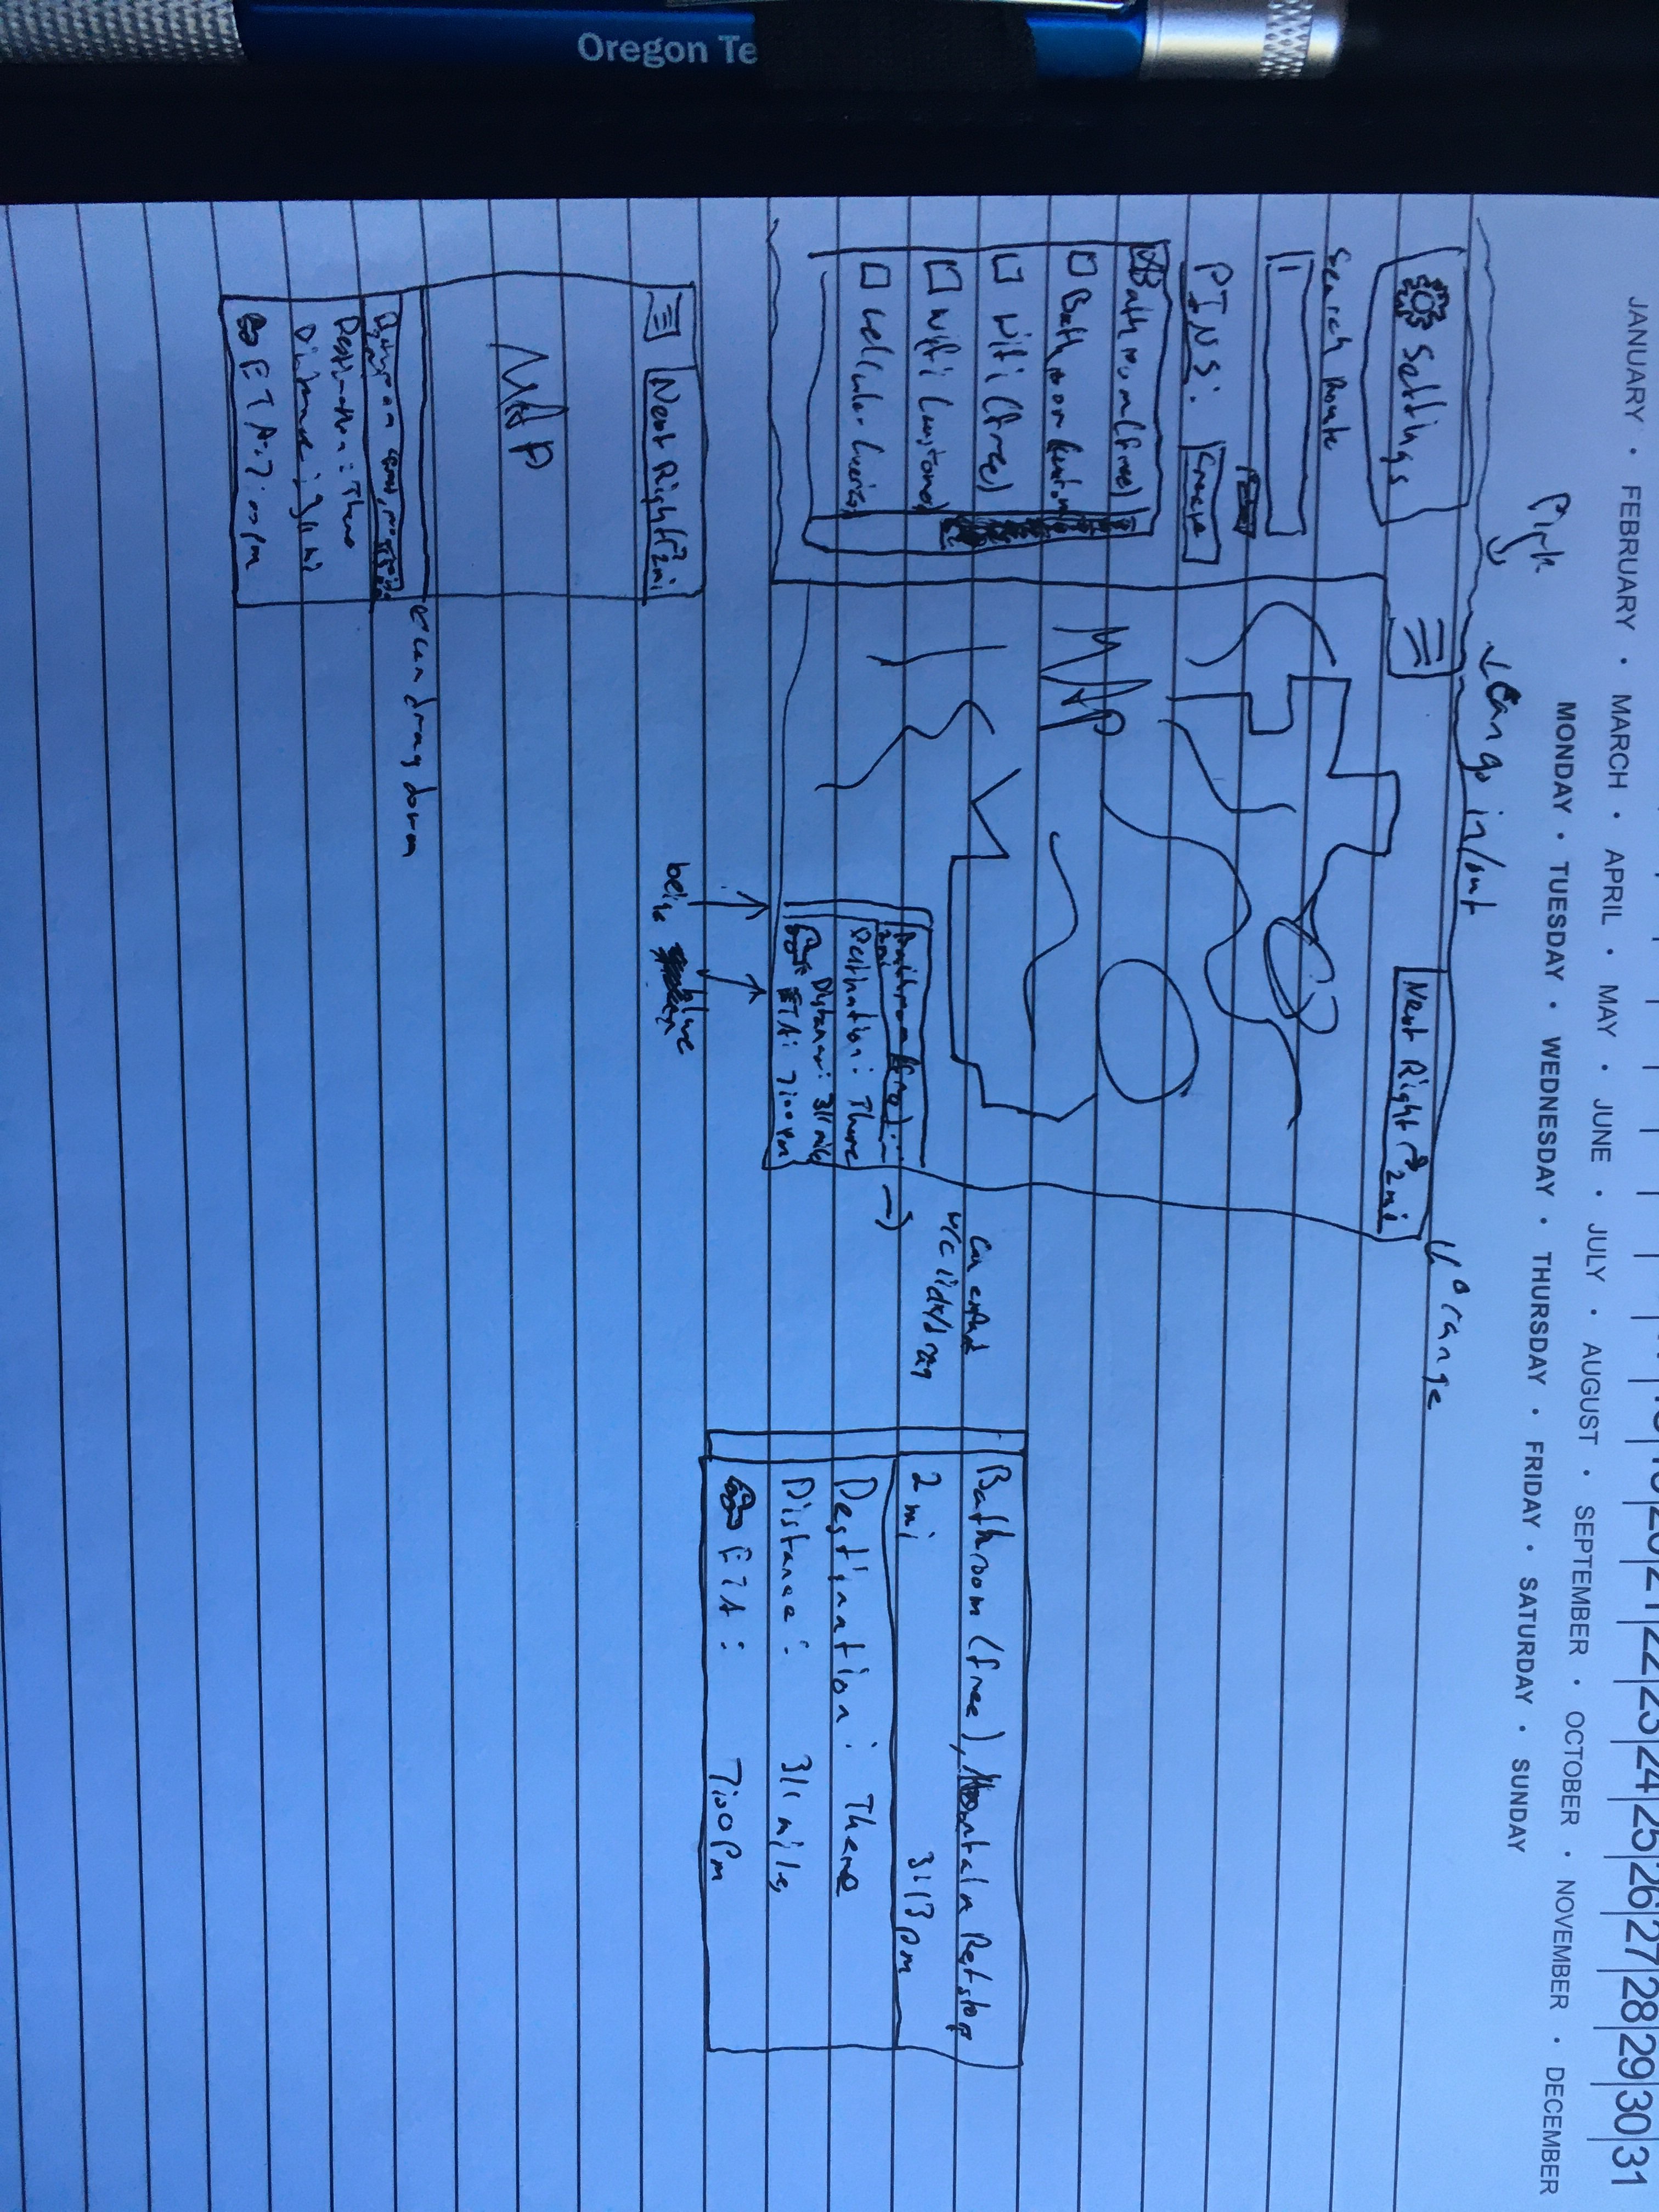 20 21 22 23 24 25 26 27 28 29 30 31
JANUARY • FEBRUARY • MARCH • APRIL • MAY • JUNE • JULY • AUGUST • SEPTEMBER • OCTOBER • NOVEMBER • DECEMBER
MONDAY • TUESDAY • WEDNESDAY • THURSDAY • FRIDAY • SATURDAY • SUNDAY
Pink
can go in/out
Orange
Settings
Next Right 2mi
Search Route
PINS:
Create
Bathroom (free)
Bathroom (custom
Wifi (free)
Wifi (custome
Cellular (verizo
MAP
Can expand
w/click/drag
Bathroom (free)...
2mi
Destination: There
Distance: 311 mile
ETA: 7:00 pm
beige
blue
Bathroom (free), Mountain Restop
2 mi 3:13 pm
Destination: There
Distance: 311 miles
ETA: 7:00 Pm
Next Right 2mi
MAP
can drag down
Bathroom (free),
Destination: There
Distance: 311 mi
ETA: 7:00 pm
Oregon Te